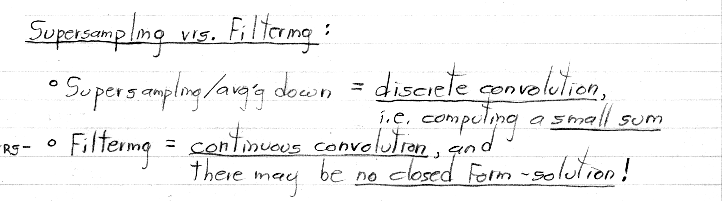 Supersampling vrs. Filtering :
° Supersampling/avg'g down = discrete convolution,
i.e. computing a small sum
RS- ° Filtering = continuous convolution, and
there may be no closed form-solution!